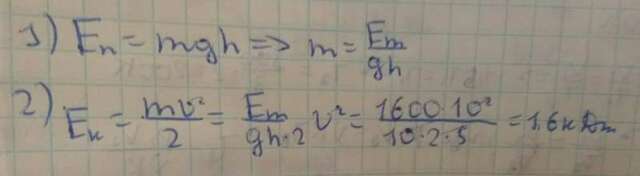 1) Eп = mgh => m = Em/gh
2) Eк = mv²/2 = Em/gh·2 v² = 1600·10²/10·2·5 = 1,6 кДж